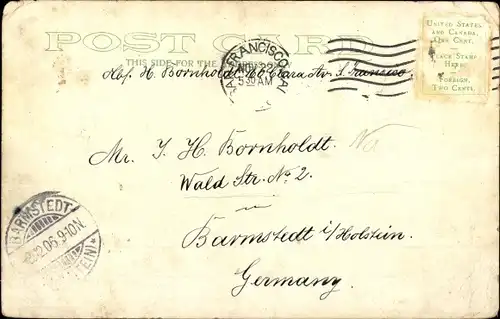 POST CARD
THIS SIDE FOR THE
H. Bornholdt 160 Clara Str. S. Francisco
SAN FRANCISCO, CAL.
NOV
5 30 AM
UNITED STATES
AND CANADA,
ONE CENT.
PLACE STAMP
HERE.
FOREIGN,
TWO CENTS.
Mr. J. H. Bornholdt
Wald Str. No. 2.
Barmstedt i/Holstein.
Germany.
BARMSTEDT
12.06. 9-10N